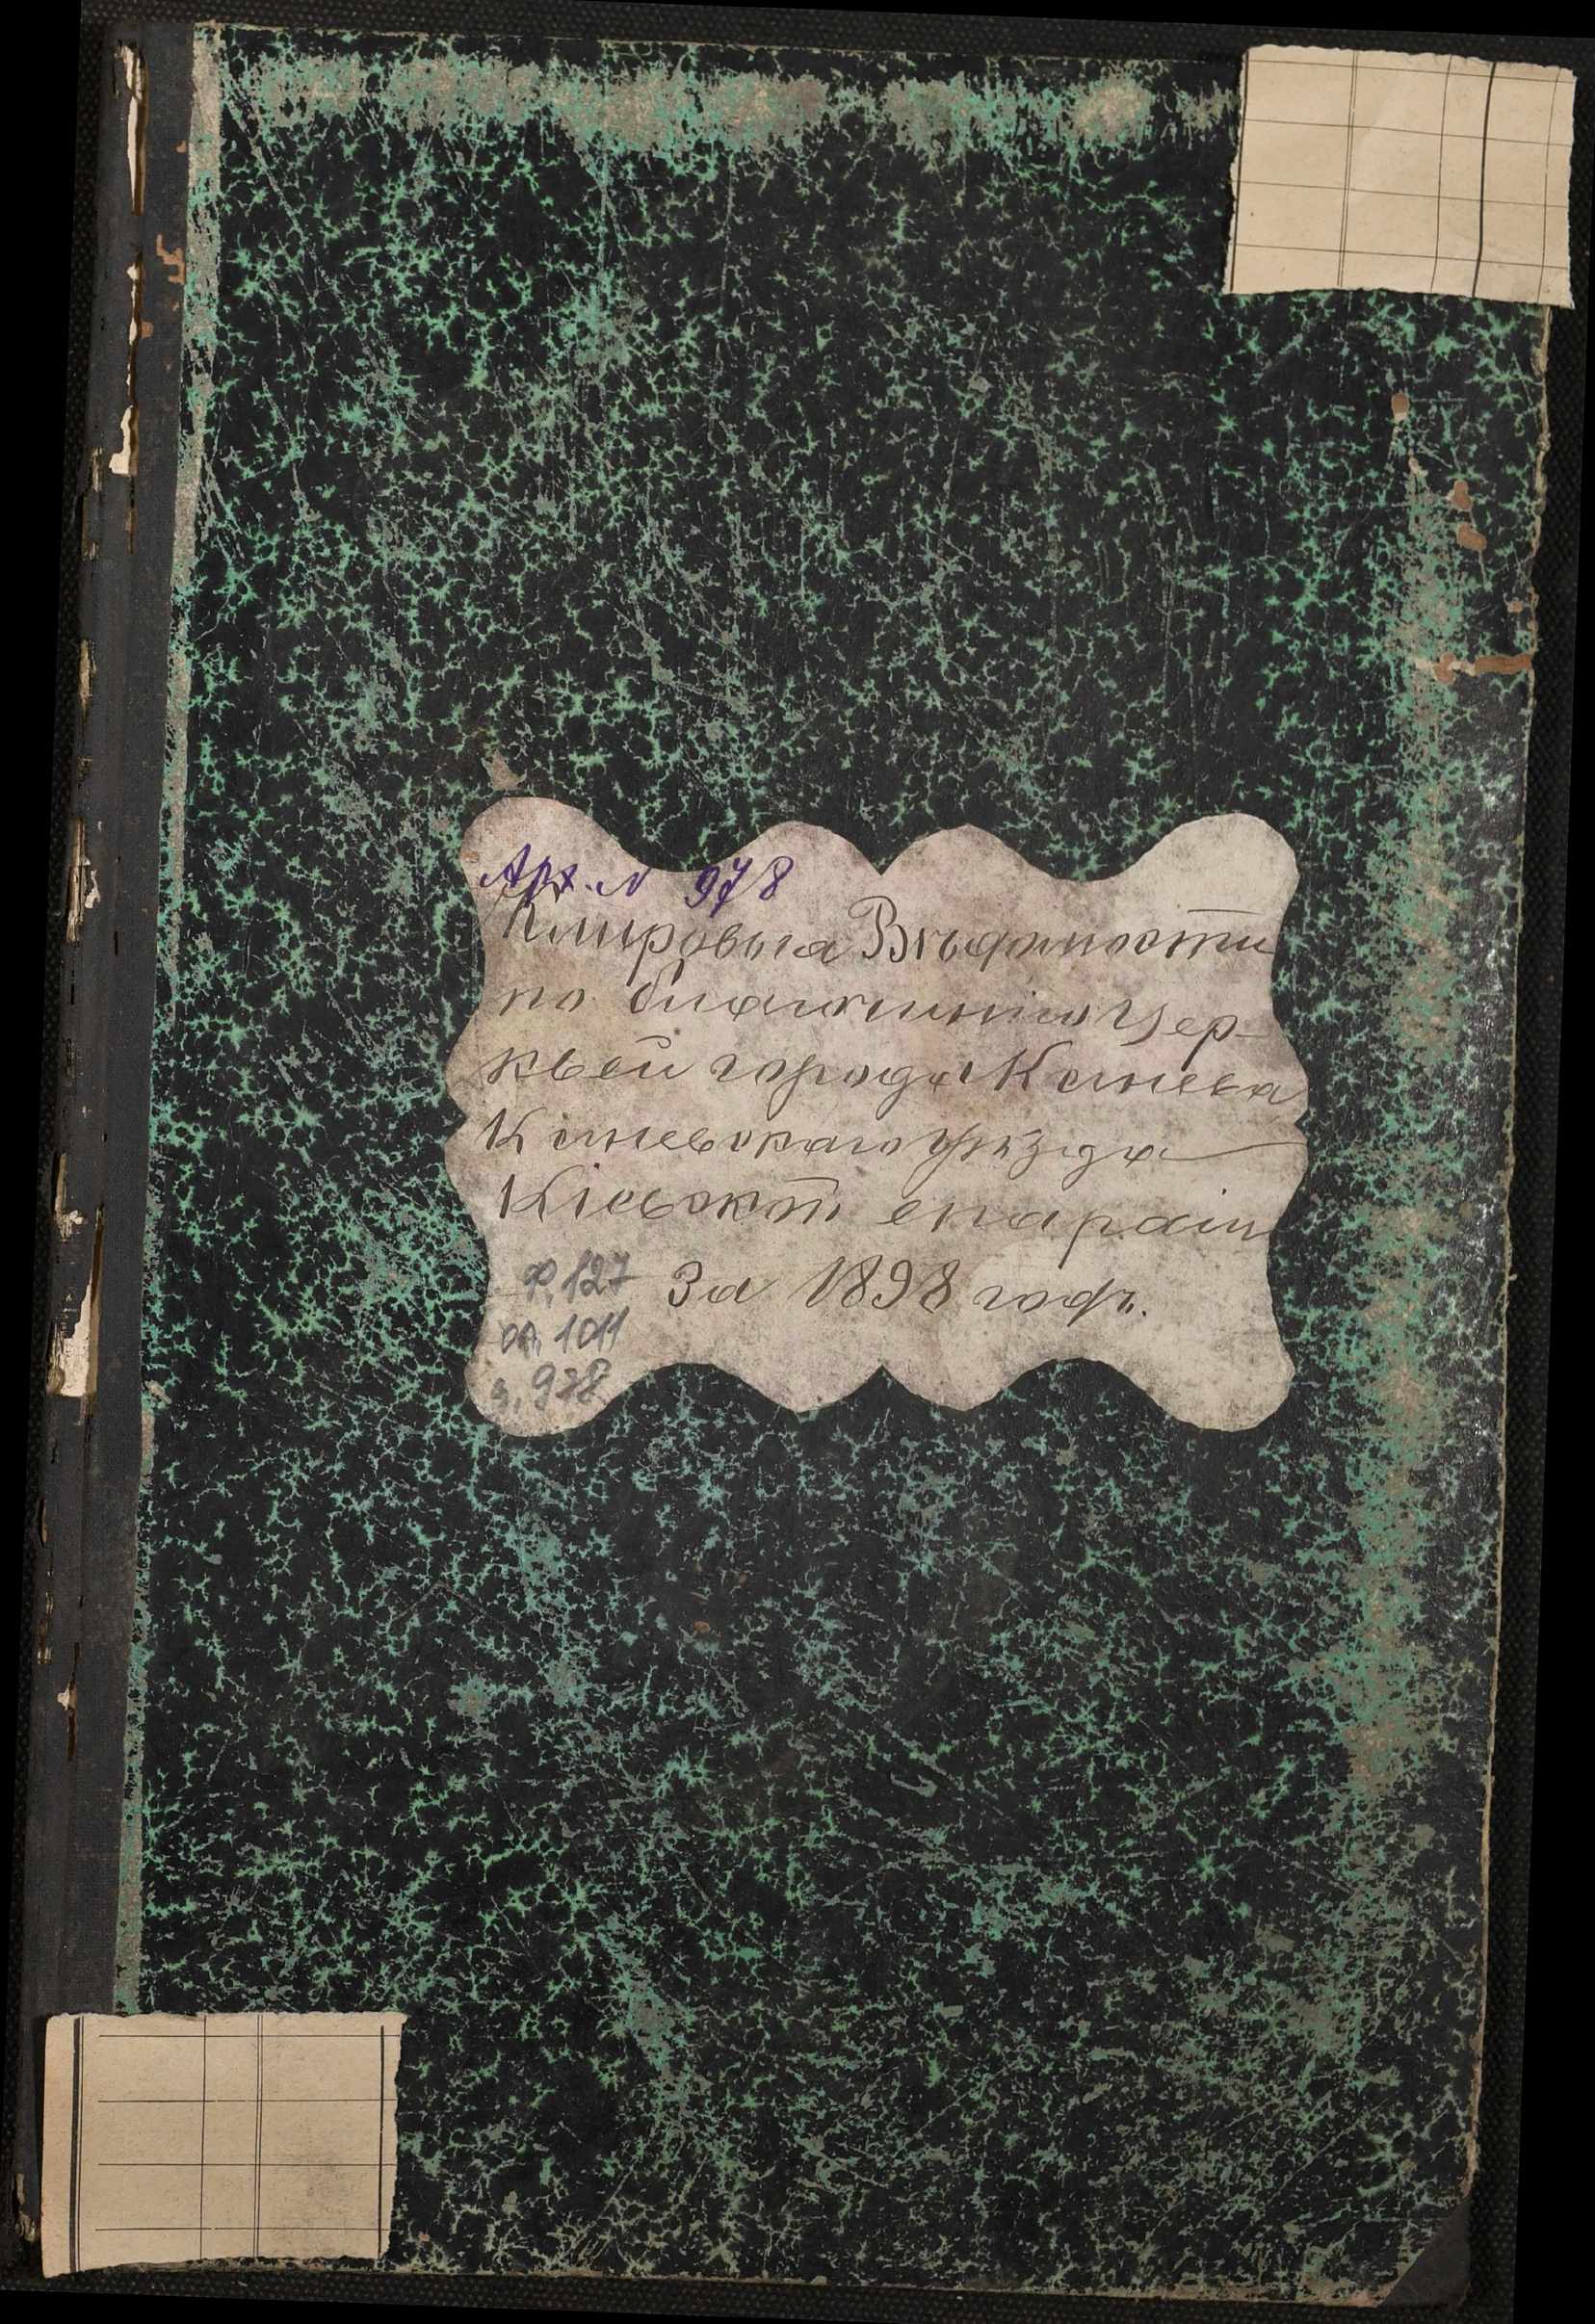 Арх. N 978
Клировыя Вѣдомости
по благочинію Цер-
квей города Канева
Каневскаго уѣзда
Кіевской епархіи
За 1898 годъ.
Ф. 127
оп. 1011
д. 978